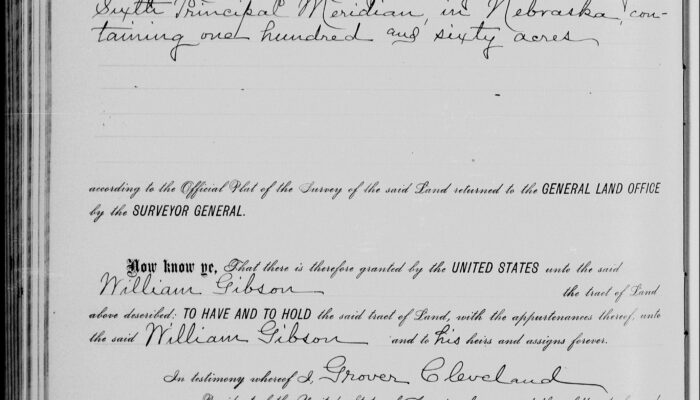 Sixth Principal Meridian, in Nebraska, con-
taining one hundred and sixty acres
according to the Official Plat of the Survey of the said Land returned to the GENERAL LAND OFFICE
by the SURVEYOR GENERAL.
Now know ye, That there is therefore granted by the UNITED STATES unto the said
William Gibson the tract of Land
above described: TO HAVE AND TO HOLD the said tract of Land, with the appurtenances thereof, unto
the said William Gibson and to his heirs and assigns forever.
In testimony whereof I, Grover Cleveland